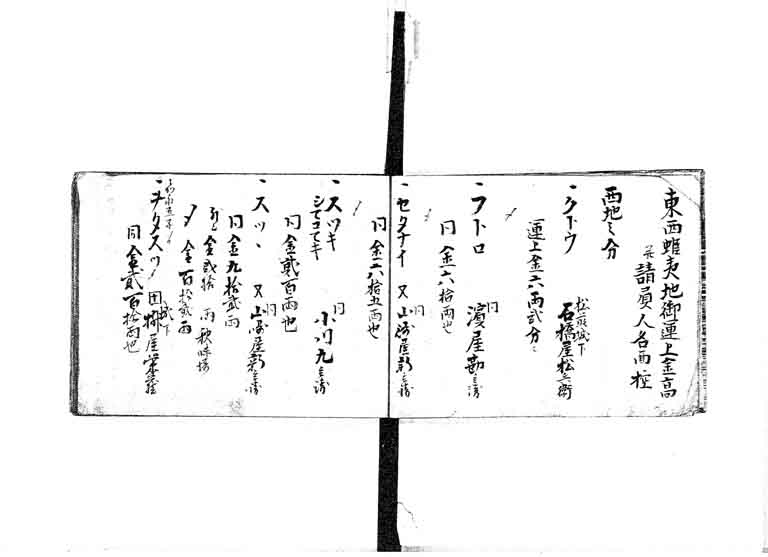 東西蝦夷地御運上金高
并請負人名面控
西地之分
一クトウ 松前城下
石橋屋松兵衛
運上金六両弐分
一フトロ 同
濱屋勘兵衛
同金六拾両也
一セタナイ 同
又山崎屋新兵衛
同金六拾五両也
一スツキ 同
シマコマキ 小川九兵衛
同金貳百両也
一スツヽ 同
又山崎屋新兵衛
同金九拾弐両
金弐拾両 秋味場
〆金百拾弐両
一ヲタスツ 城下
同金貳百拾両也